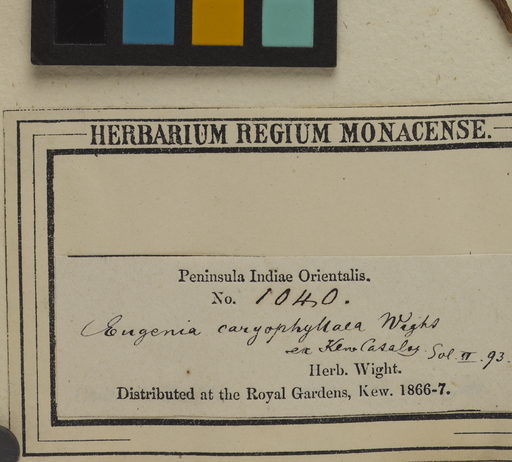 HERBARIUM REGIUM MONACENSE.
Peninsula Indiae Orientalis.
No. 1040.
Eugenia caryophyllaea Wight
ex Kew Catalog Fol. II. 93.
Herb. Wight.
Distributed at the Royal Gardens, Kew. 1866-7.